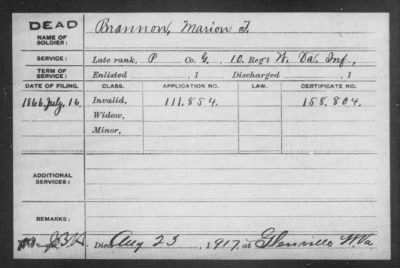 DEAD
NAME OF SOLDIER: Brannon, Marion T.
SERVICE: Late rank, P Co. G, 10 Reg't W. Va. Inf.,
TERM OF SERVICE: Enlisted , 1 Discharged , 1
DATE OF FILING. CLASS. APPLICATION NO. LAW. CERTIFICATE NO.
1866, July, 16. Invalid, 111.854. 158.804.
Widow,
Minor,
ADDITIONAL SERVICES:
REMARKS:
Died Aug 23, 1917, at Glenville W. Va.